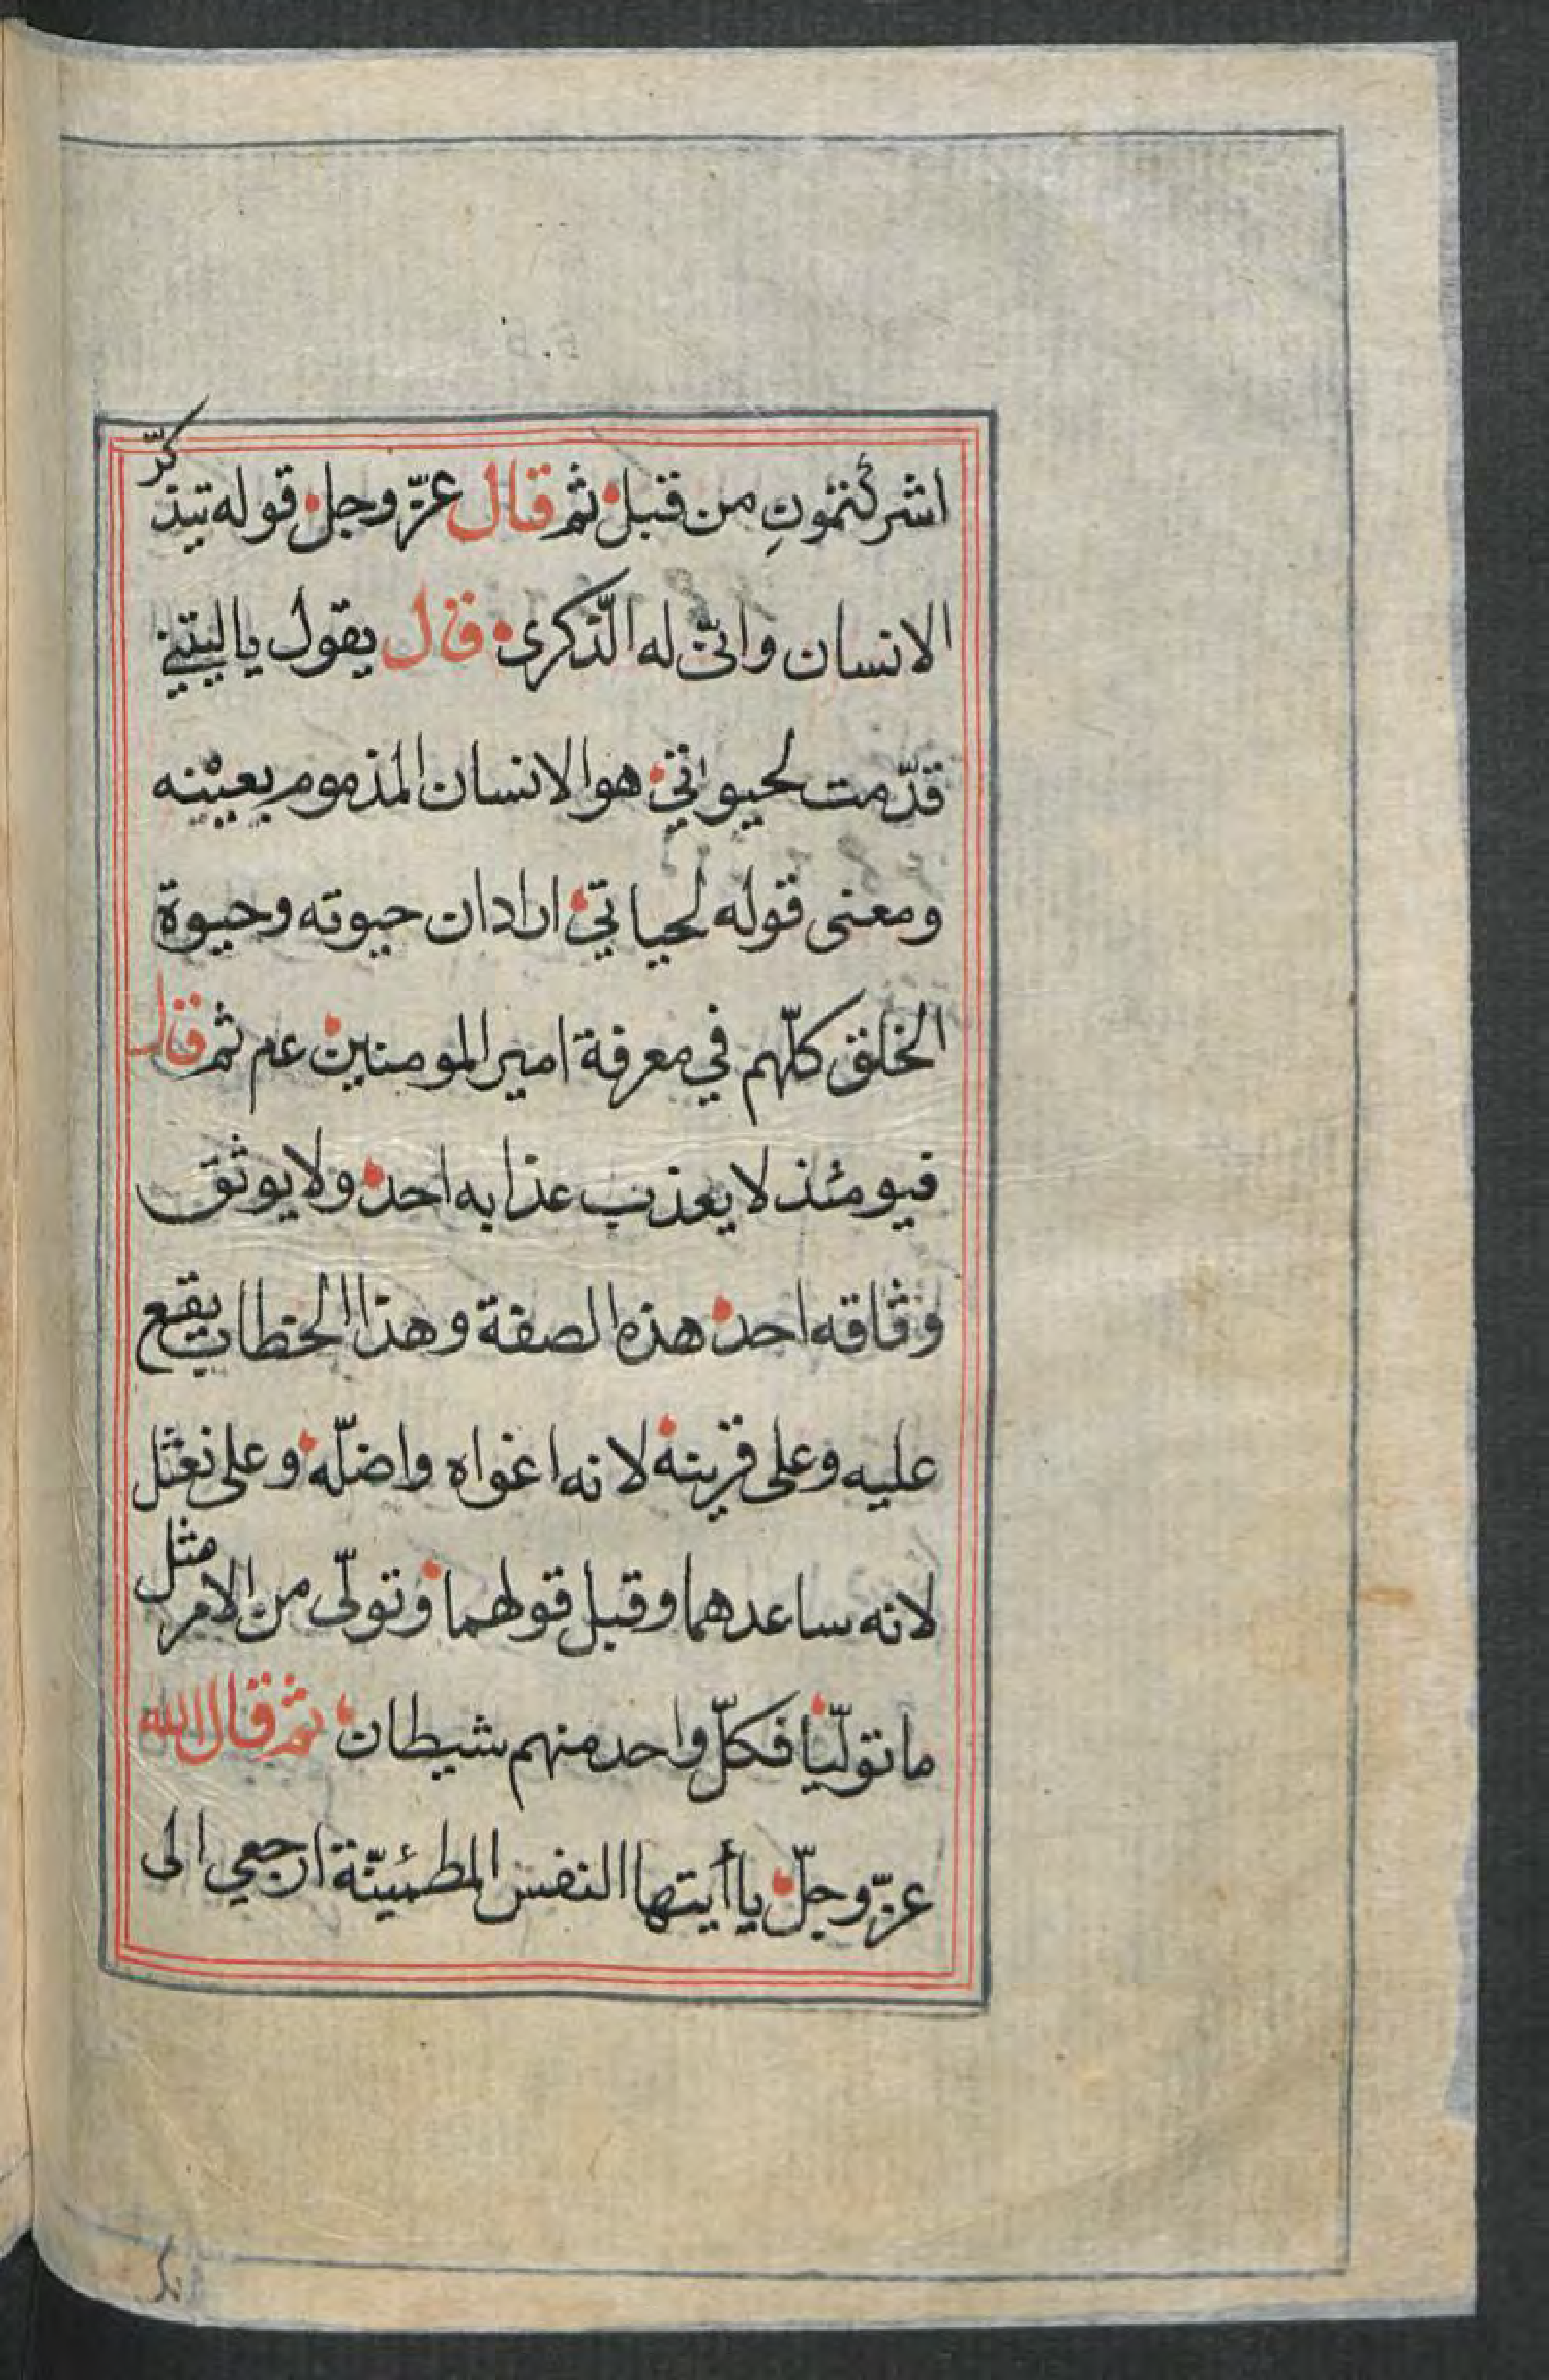 اشركتمون من قبل ثم قال عزّ وجل قوله يتذكّر
الانسان وانّى له الذّكرى قال يقول ياليتني
قدّمت لحيواتي هو الانسان المذموم بعينه
ومعنى قوله لحياتي اراد ان حيوته وحيوة
الخلق كلّهم في معرفة امير المومنين عم ثم قال
فيومئذ لا يعذب عذابه احد ولا يوثق
وثاقه احد هذه الصفة وهذا الخطاب يقع
عليه وعلى قرينه لانه اغواه واضلّه وعلى نعثل
لانه ساعدهما وقبل قولهما وتولّى من الامر مثل
ما تولّيا فكلّ واحد منهم شيطان ثم قال الله
عزّ وجلّ يا أيتها النفس المطمئينّة ارجعي الى